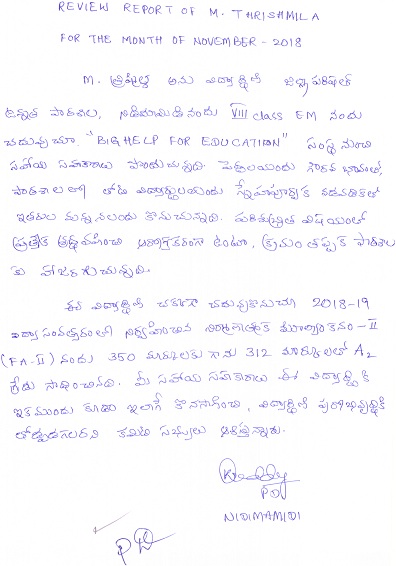 REVIEW REPORT OF M. THRISHMILA
FOR THE MONTH OF NOVEMBER - 2018
M. త్రిషిల్ల అను విద్యార్థిని జిల్లా పరిషత్
ఉన్నత పాఠశాల, నిడిమామిడి నందు VIII class EM నందు
చదువుచూ "BIG HELP FOR EDUCATION" సంస్థ నుంచి
సహాయ సహకారాలు పొందుచున్నది. పెద్దలయందు గౌరవ భావంతో,
పాఠశాలలో తోటి విద్యార్థులయందు స్నేహపూర్వక నడవడికతో
ఇతరుల మన్ననలందు కొనుచున్నది. పరిశుభ్రత విషయంలో
ప్రత్యేక శ్రద్ధ వహించి ఆరోగ్యకరంగా ఉంటూ, క్రమం తప్పక పాఠశాల
కు హాజరగుచున్నది.
ఈ విద్యార్థిని చక్కగా చదువుకొనుచూ 2018-19
విద్యా సంవత్సరంలో నిర్వహించిన నిర్మాణాత్మక మూల్యాంకనం - II
(FA-II) నందు 350 మార్కులకు గాను 312 మార్కులతో A2
గ్రేడు సాధించినది. మీ సహాయ సహకారాలు ఈ విద్యార్థినికి
ఇకముందు కూడా ఇలాగే కొనసాగించి, విద్యార్థిని పురోభివృద్ధికి
తోడ్పడగలరని కమిటి సభ్యులు ఆశిస్తున్నారు.
PD
NIDIMAMIDI